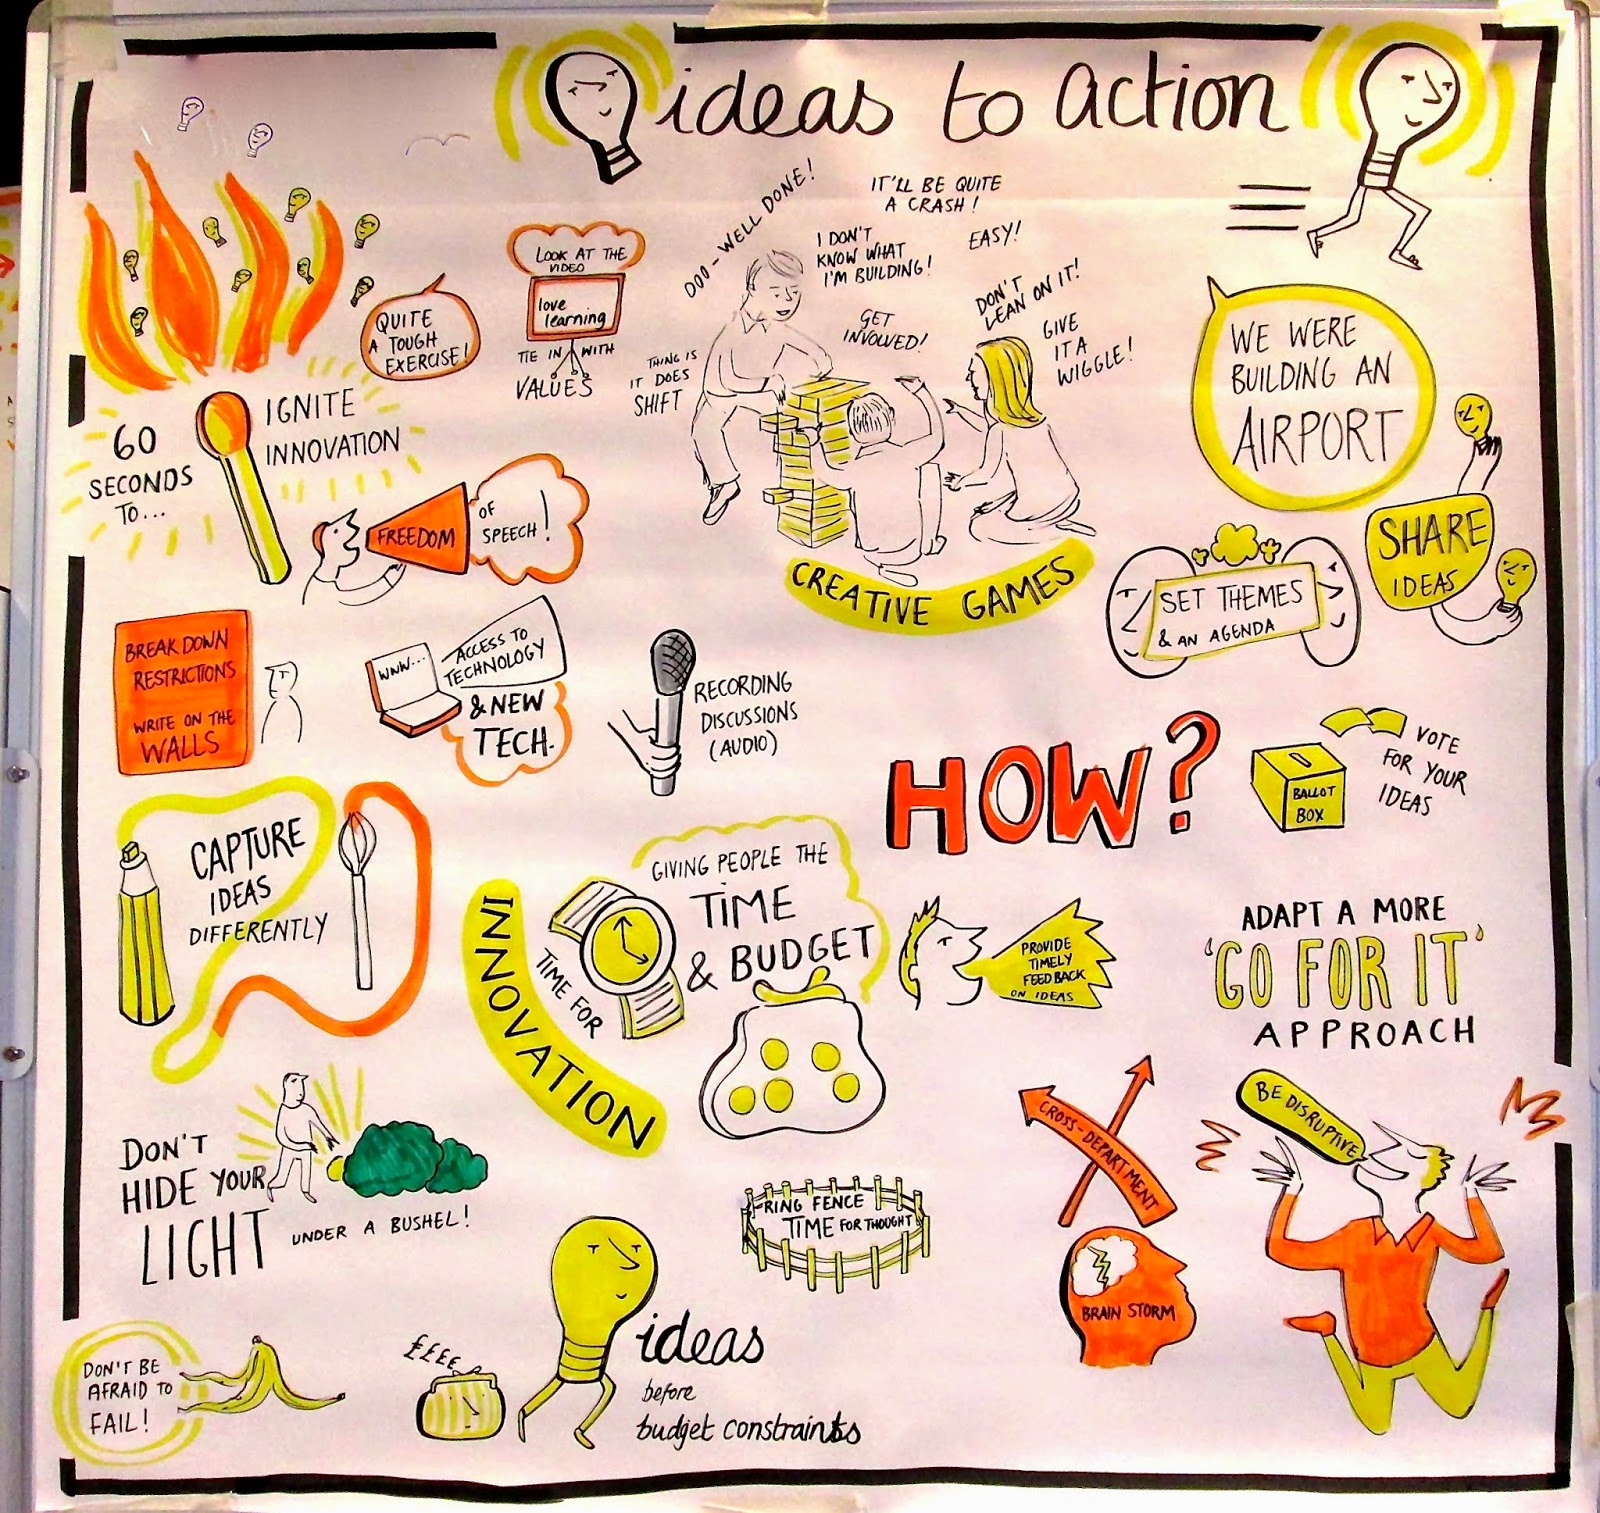 ideas to action
60
SECONDS
TO...
IGNITE
INNOVATION
QUITE
A TOUGH
EXERCISE!
LOOK AT THE
VIDEO
love
learning
TIE IN WITH
VALUES
FREEDOM
OF
SPEECH!
OOO-WELL DONE!
IT'LL BE QUITE
A CRASH!
I DON'T
KNOW WHAT
I'M BUILDING!
EASY!
GET
INVOLVED!
DON'T
LEAN ON IT!
GIVE
IT A
WIGGLE!
THING IS
IT DOES
SHIFT
CREATIVE GAMES
WE WERE
BUILDING AN
AIRPORT
SHARE
IDEAS
SET THEMES
& AN AGENDA
BREAK DOWN
RESTRICTIONS
WRITE ON THE
WALLS
WWW...
ACCESS TO
TECHNOLOGY
& NEW
TECH.
RECORDING
DISCUSSIONS
(AUDIO)
HOW?
BALLOT
BOX
VOTE
FOR YOUR
IDEAS
CAPTURE
IDEAS
DIFFERENTLY
TIME FOR
INNOVATION
GIVING PEOPLE THE
TIME
& BUDGET
PROVIDE
TIMELY
FEEDBACK
ON IDEAS
ADAPT A MORE
'GO FOR IT'
APPROACH
DON'T
HIDE YOUR
LIGHT UNDER A BUSHEL!
RING FENCE
TIME FOR THOUGHT
CROSS-DEPARTMENT
BRAIN STORM
BE DISRUPTIVE
DON'T BE
AFRAID TO
FAIL!
££££
ideas
before
budget constraints